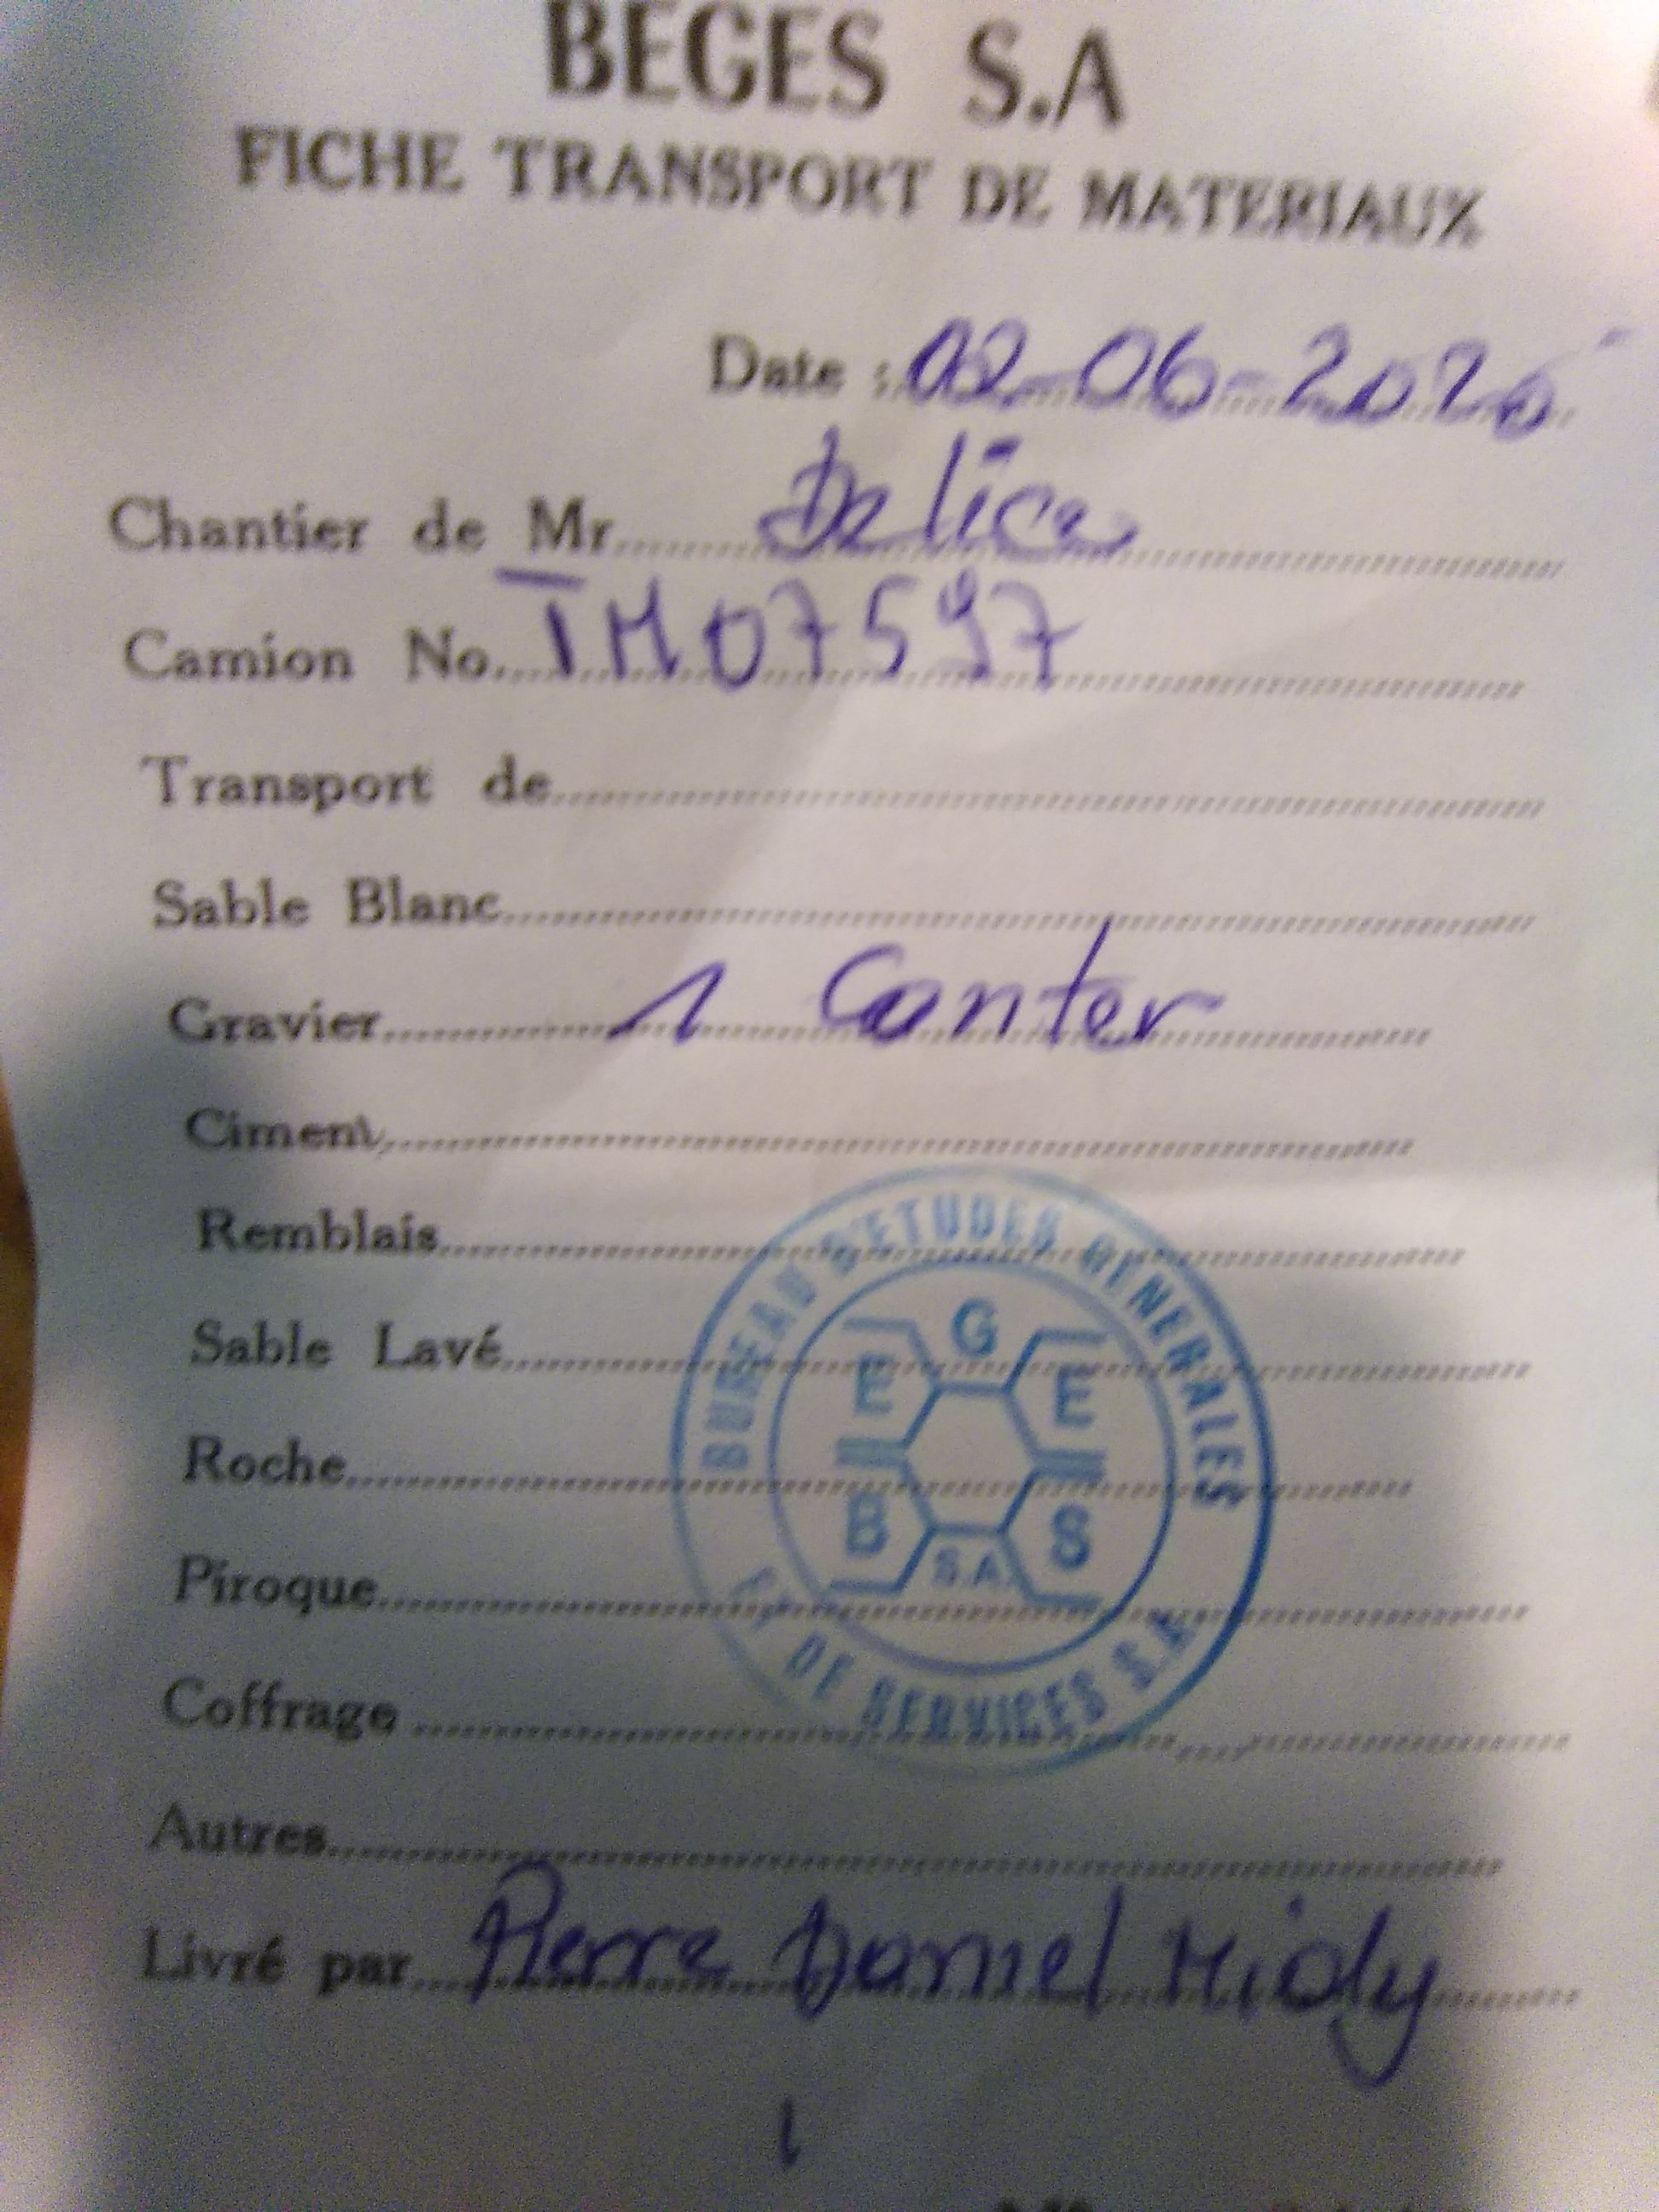 BEGES S.A
FICHE TRANSPORT DE MATERIAUX
Date : 02-06-2020
Chantier de Mr Delice
Camion No. TM07597
Transport de
Sable Blanc
Gravier 1 Canter
Ciment
Remblais
Sable Lavé
Roche
Piroque
Coffrage
Autres
Livré par Pierre Daniel Mioly
BUREAU D'ETUDES GENERALES
ET DE SERVICES S.A.
B E G E S
S.A.